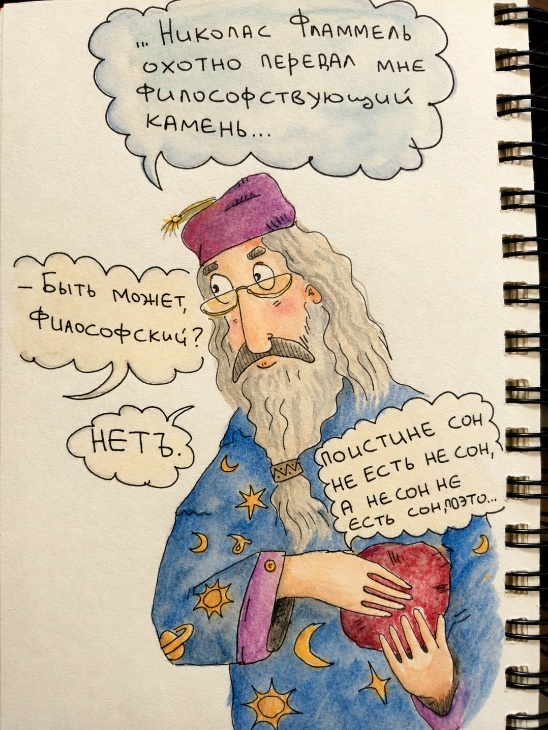 ... Николас Фламмель
охотно передал мне
философствующий
камень...
– Быть может,
Философский?
НЕТЪ.
ПОИСТИНЕ СОН
НЕ ЕСТЬ НЕ СОН,
А НЕ СОН НЕ
ЕСТЬ СОН, ПОЭТО...